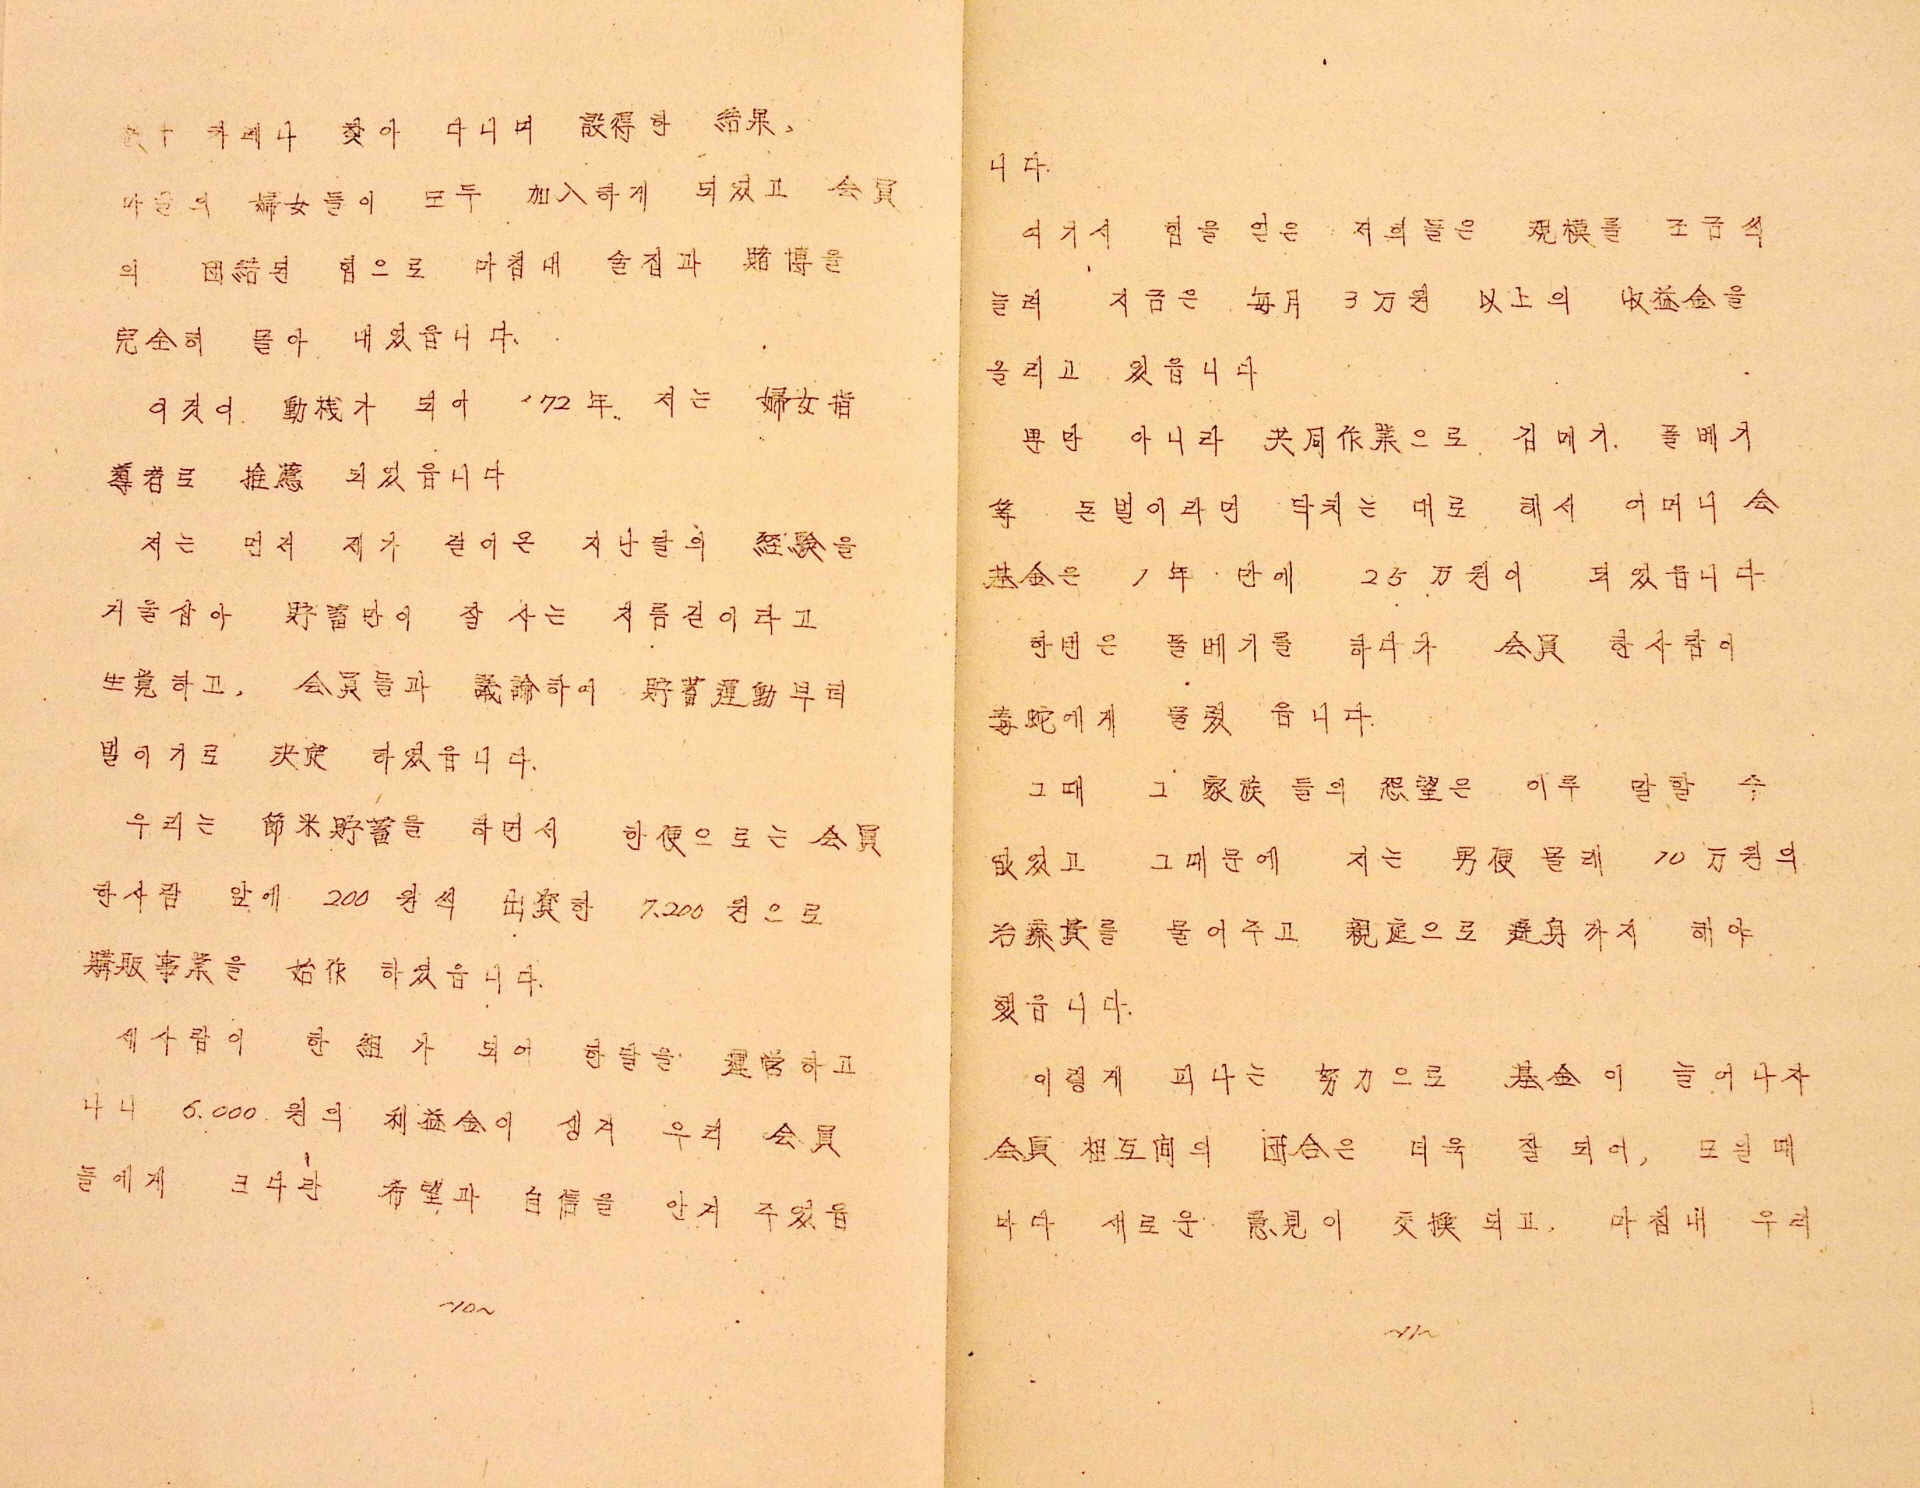 数十 차례나 찾아 다니며 設得한 結果,
마을의 婦女들이 모두 加入하게 되었고 会員
의 団結된 힘으로 마침내 술집과 賭博을
完全히 몰아 내었읍니다.
이것이 動機가 되어 '72年. 저는 婦女指
導者로 推薦 되었읍니다
저는 먼저 제가 걸어온 지난날의 経験을
거울삼아 貯蓄만이 잘 사는 지름길이라고
生覚하고, 会員들과 議論하여 貯蓄運動부터
벌이기로 決定 하였읍니다.
우리는 節米貯蓄을 하면서 한便으로는 会員
한사람 앞에 200 원씩 出資한 7.200 원으로
購販事業을 始作 하였읍니다.
세사람이 한 組가 되어 한달을 運営하고
나니 6.000 원의 利益金이 생겨 우리 会員
들에게 크다란 希望과 自信을 안겨 주었읍
~10~
니다.
여기서 힘을 얻은 저희들은 規模를 조금씩
늘려 지금은 毎月 3万원 以上의 收益金을
올리고 있읍니다
뿐만 아니라 共同作業으로 김메기. 풀베기
等 돈벌이라면 닥치는 대로 해서 어머니 会
基金은 1年 만에 25万원이 되었읍니다
한번은 풀베기를 하다가 会員 한사람이
毒蛇에게 물렸 읍니다.
그때 그 家族 들의 怨望은 이루 말할 수
없었고 그때문에 저는 男便 몰래 10 万원의
治療費를 물어주고 親庭으로 避身까지 해야
했읍니다.
이렇게 피나는 努力으로 基金이 늘어나자
会員 相互間의 団合은 더욱 잘 되어, 모일때
마다 새로운 意見이 交換되고. 마침내 우리
~11~